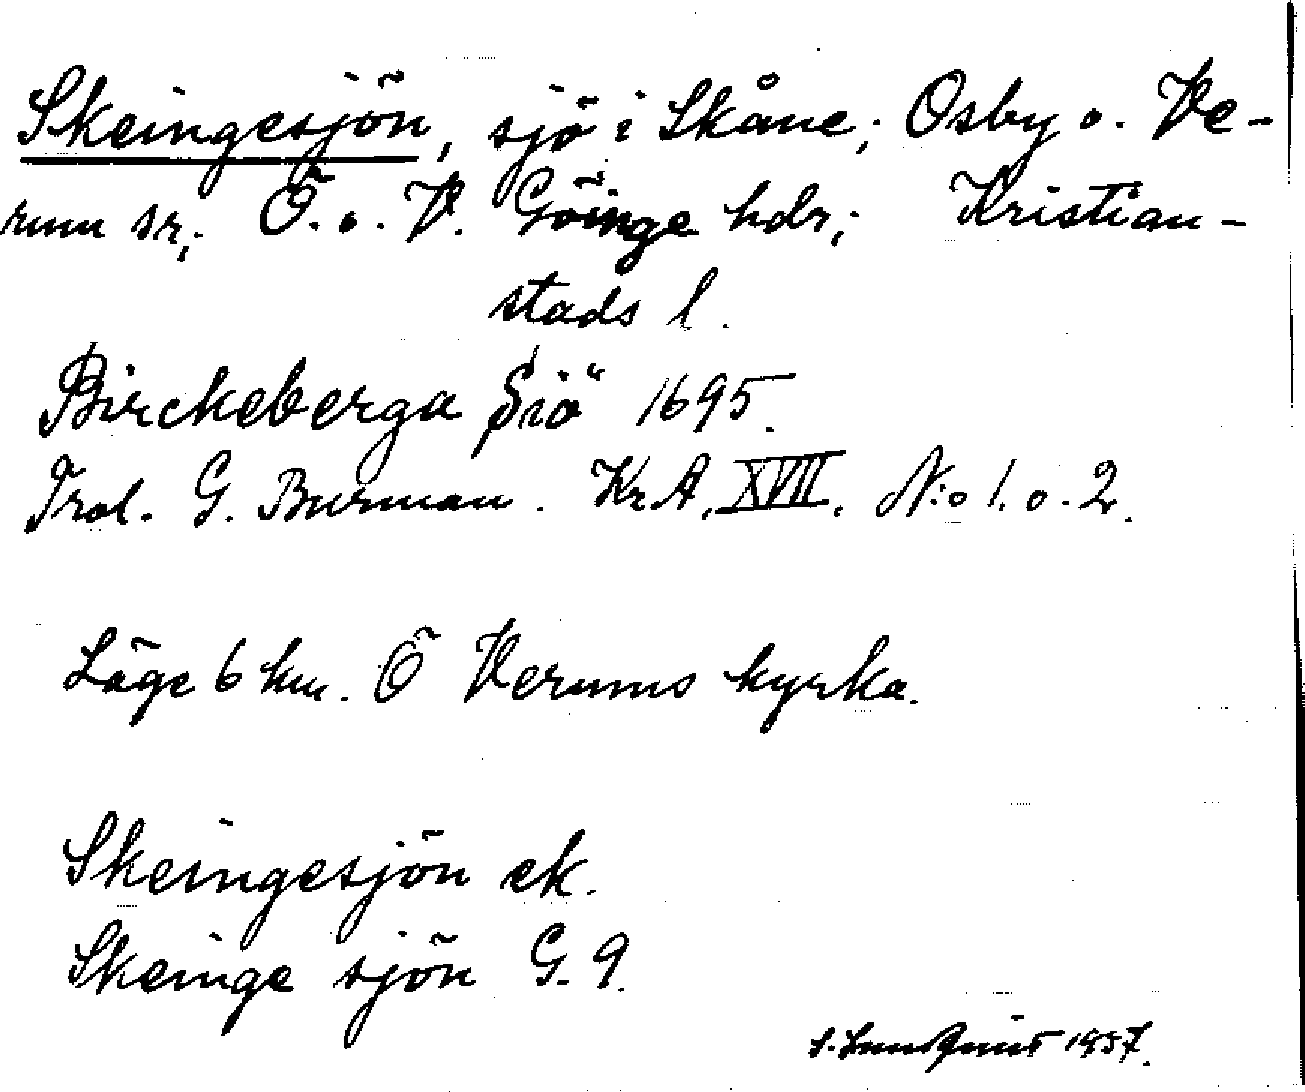 Skeingesjön, sjö i Skåne; Osby o. Ve-
rum sr; Ö. o. V. Göinge hdr; Kristian-
stads l.
Birckeberga Siö 1695.
Trol. G. Burman. Kr.A. XVII. N:o 1. o. 2.
Läge 6 km. Ö Verums kyrka.
Skeingesjön ek.
Skeinge sjön G. 9.
S. Lundquist 1937.